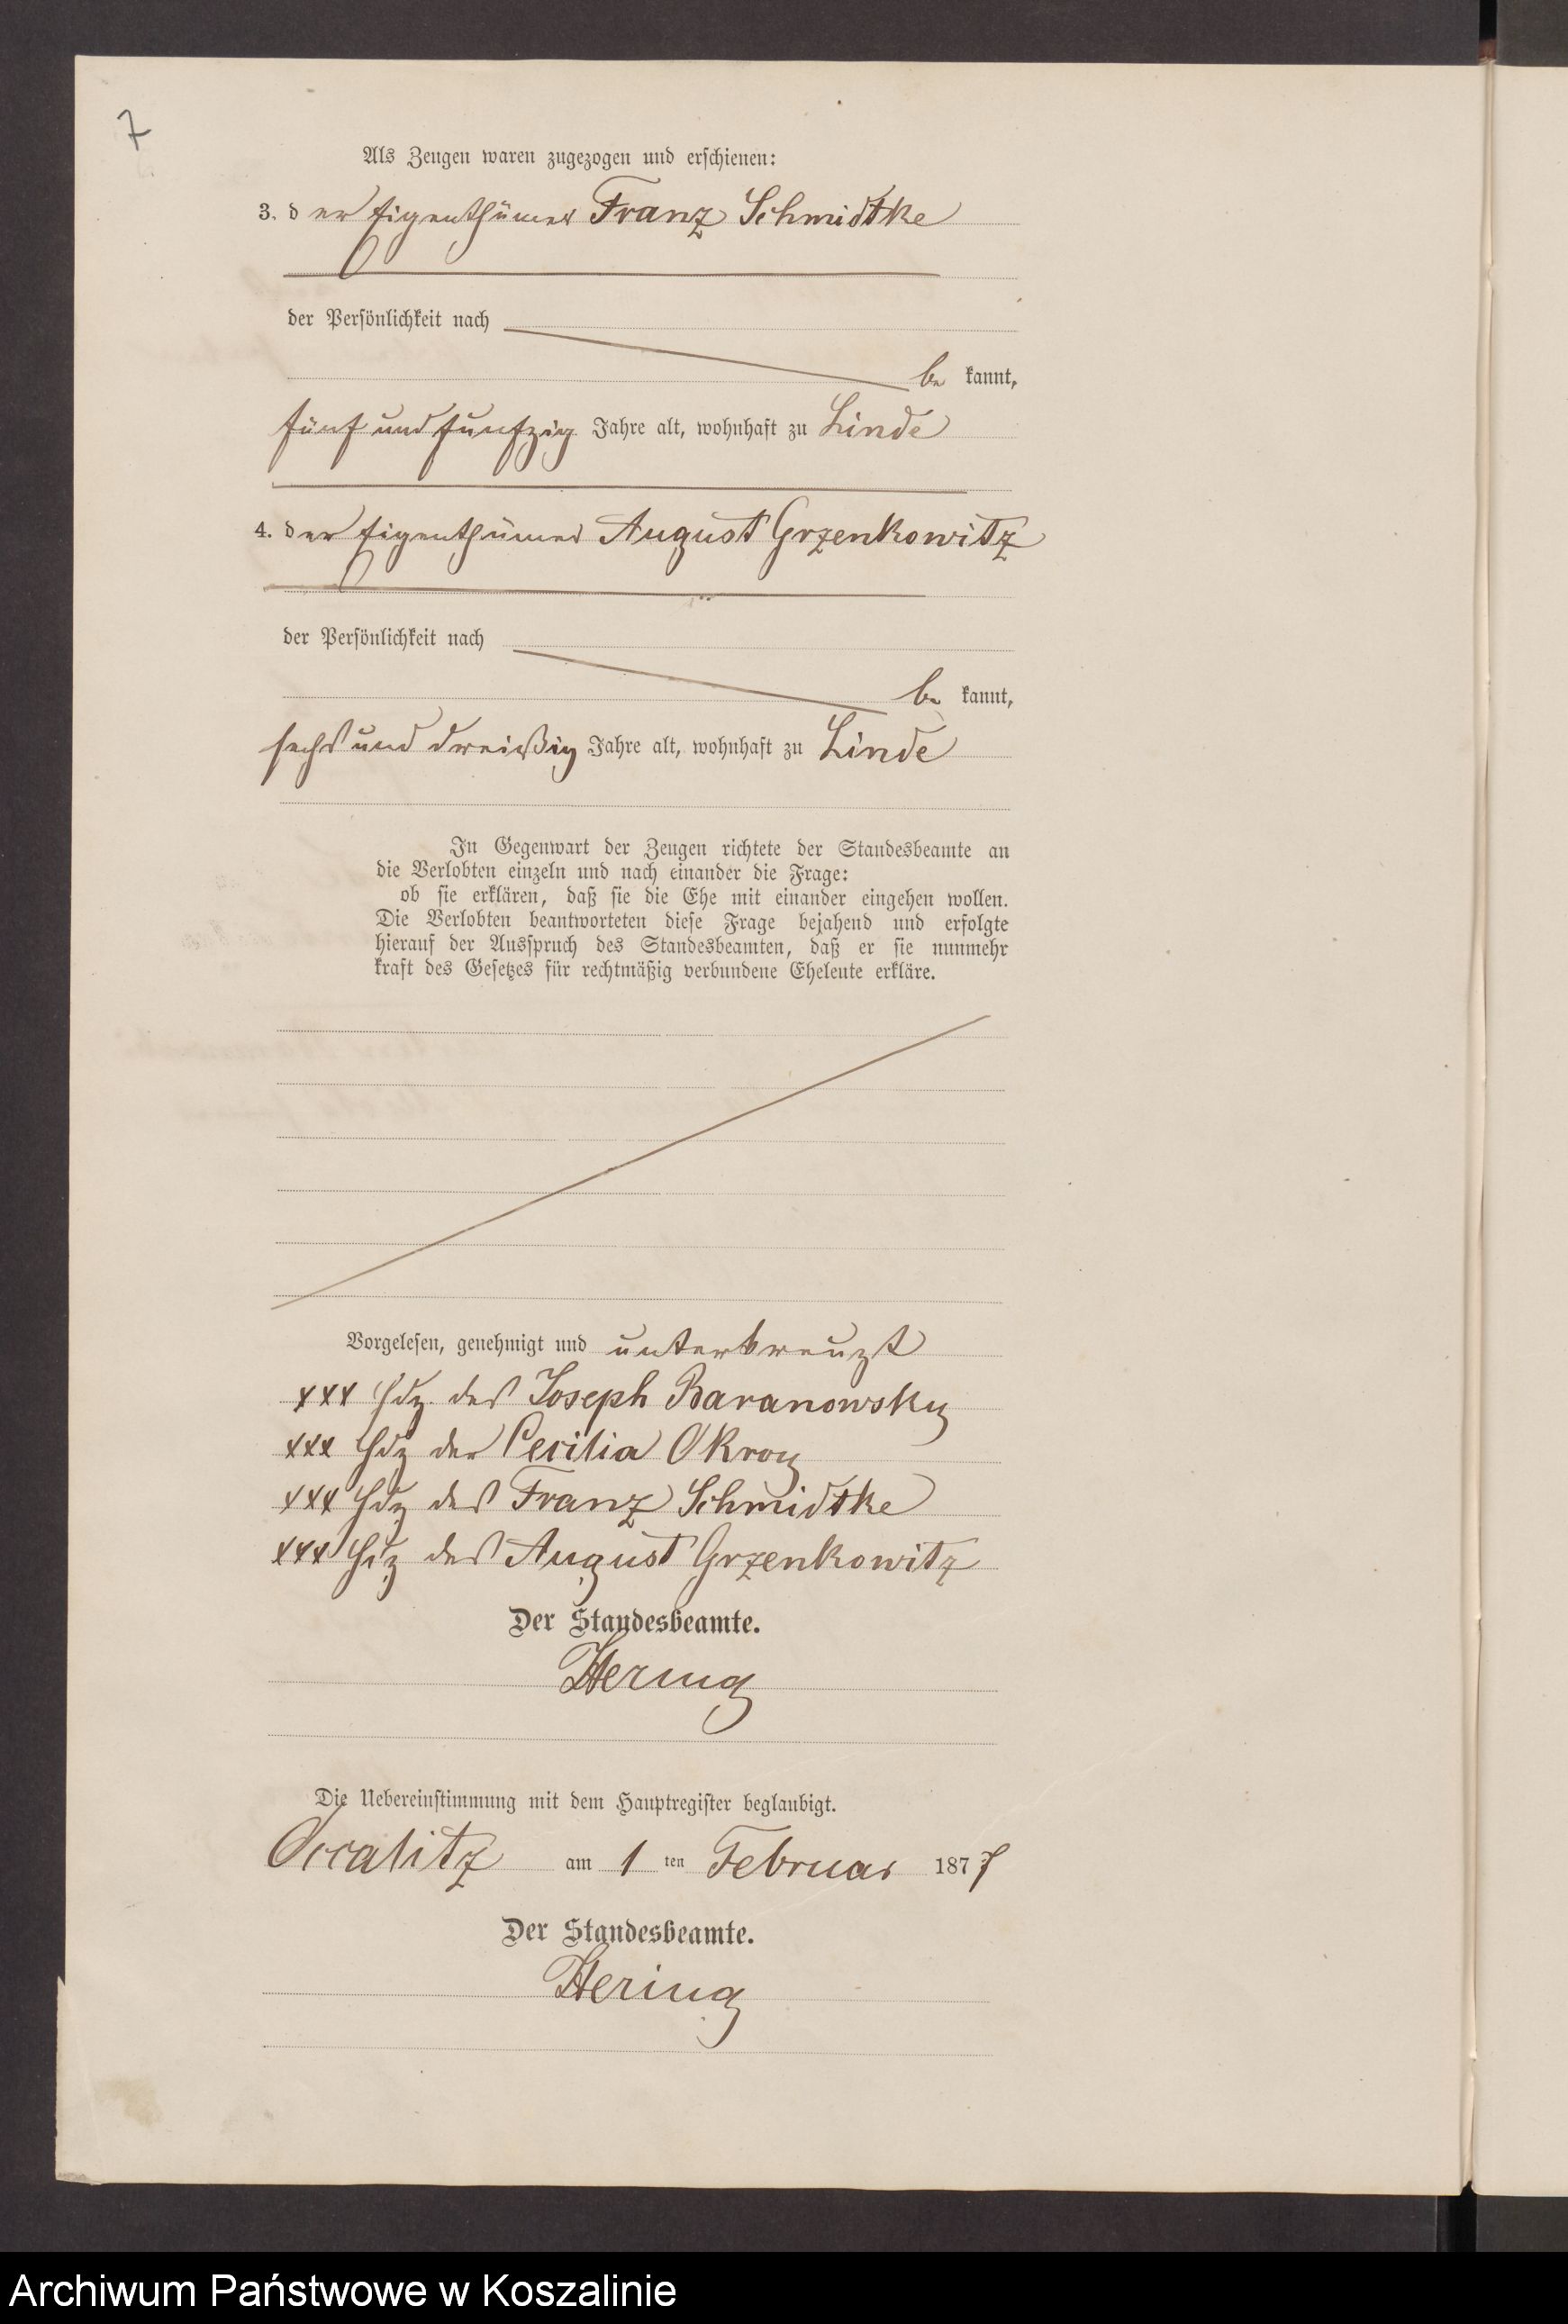 7
Als Zeugen waren zugezogen und erschienen:
3. der Eigenthümer Franz Schmidtke
der Persönlichkeit nach
be kannt,
fünf und funfzig Jahre alt, wohnhaft zu Linde
4. der Eigenthümer August Grzenkowitz
der Persönlichkeit nach
be kannt,
sechs und dreißig Jahre alt, wohnhaft zu Linde
In Gegenwart der Zeugen richtete der Standesbeamte an
die Verlobten einzeln und nach einander die Frage:
ob sie erklären, daß sie die Ehe mit einander eingehen wollen.
Die Verlobten beantworteten diese Frage bejahend und erfolgte
hierauf der Ausspruch des Standesbeamten, daß er sie nunmehr
kraft des Gesetzes für rechtmäßig verbundene Eheleute erkläre.
Vorgelesen, genehmigt und unterkreuzt
xxx Hdz. des Joseph Baranowsky
xxx Hdz der Cecilia Okroy
xxx Hdz des Franz Schmidtke
xxx Hdz des August Grzenkowitz
Der Standesbeamte.
Hering
Die Uebereinstimmung mit dem Hauptregister beglaubigt.
Occalitz am 1 ten Februar 1877
Der Standesbeamte.
Hering
Archiwum Państwowe w Koszalinie